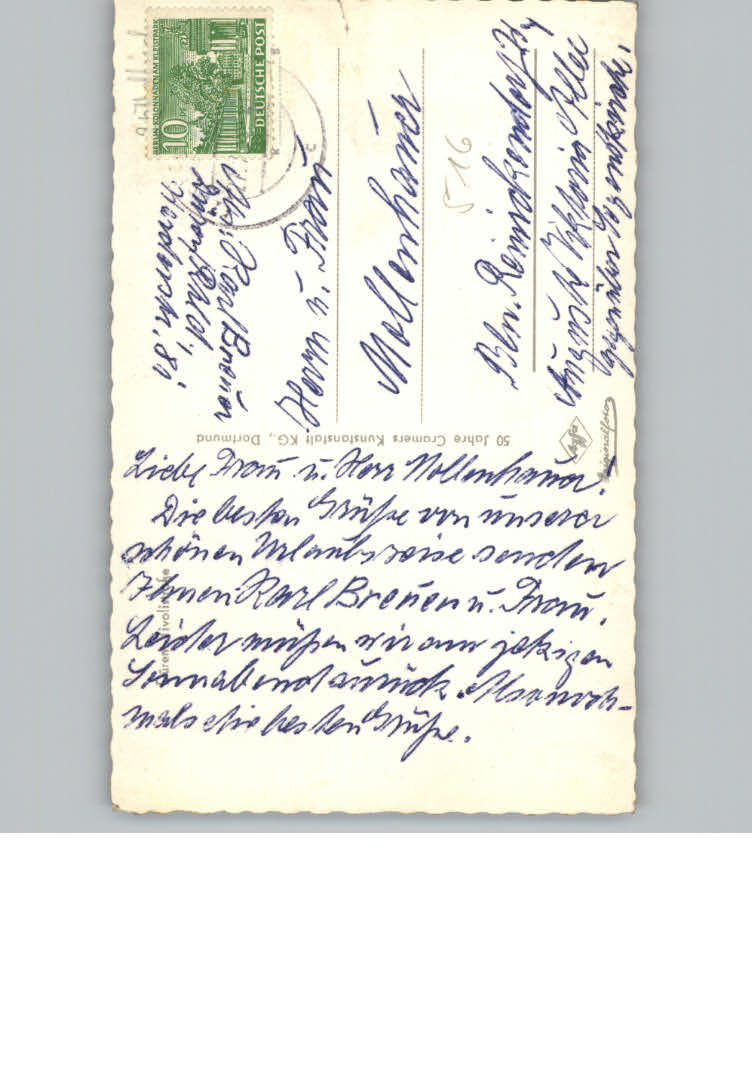 Liebe Frau u. Herr Mollenhauer.
Die besten Grüße von unserer
schönen Urlaubsreise senden
Ihnen Karl Breuer u. Frau.
Leider müßen wir am jetzigen
Sonnabend zurück. Also noch-
mals die besten Grüße.
50 Jahre Cramers Kunstanstalt KG., Dortmund
Agfa
Originalfoto
10
DEUTSCHE POST
Karl Breuer
Herrn u. Frau
Mollenhauer
516
Bln. Reinickendorf
Auguste Viktoria Allee
gegenüber Segenskirche.